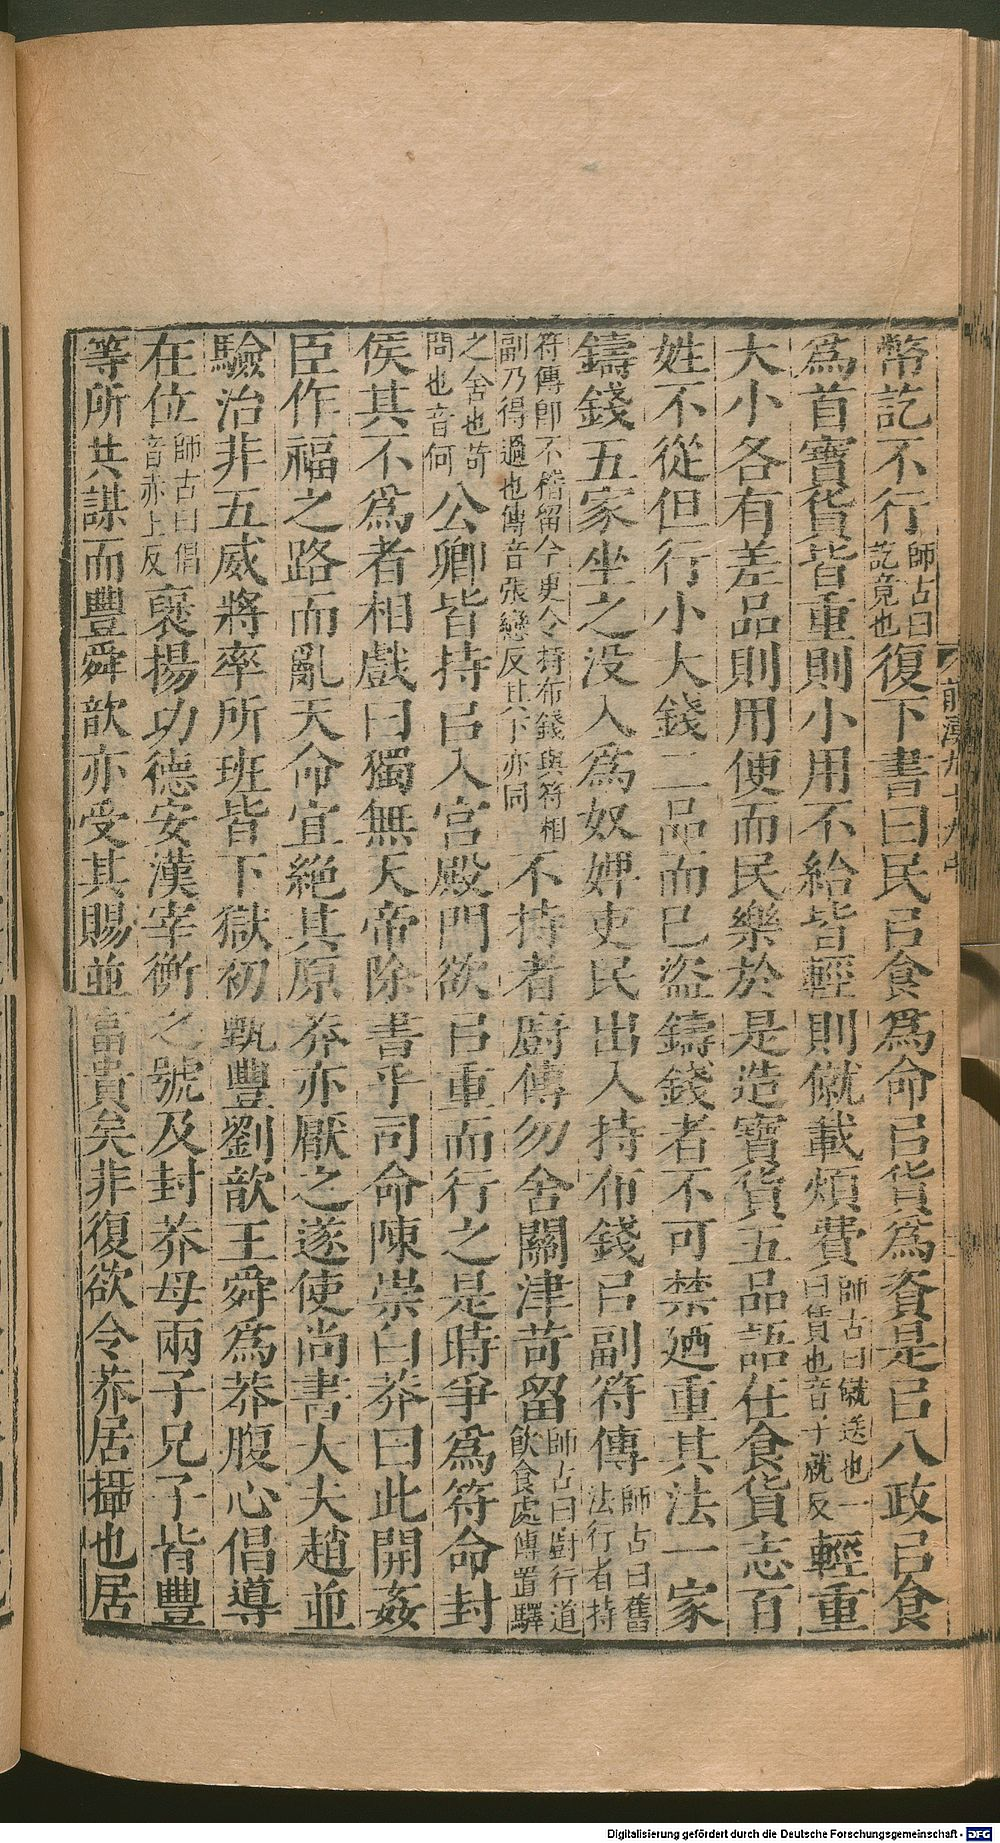 幣訖不行師古曰訖竟也復下書曰民㠯食爲命㠯貨爲資是㠯八政㠯食
爲首寶貨皆重則小用不給皆輕則僦載煩費師古曰僦送也一曰賃也音子就反輕重
大小各有差品則用便而民樂於是造寶貨五品語在食貨志百
姓不從但行小大錢二品而已盜鑄錢者不可禁廼重其法一家
鑄錢五家坐之没入爲奴婢吏民出入持布錢㠯副符傳師古曰舊法行者持
符傳即不稽留今更令持布錢與符相副乃得過也傳音張戀反其下亦同不持者廚傳勿舍關津苛留師古曰廚行道飲食處傳置驛
之舍也苛問也音何公卿皆持㠯入宮殿門欲㠯重而行之是時爭爲符命封
侯其不爲者相戲曰獨無天帝除書乎司命陳崇白莽曰此開姦
臣作福之路而亂天命宜絶其原莽亦厭之遂使尚書大夫趙並
驗治非五威將率所班皆下獄初甄豐劉歆王舜爲莽腹心倡導
在位師古曰倡音赤上反襃揚功德安漢宰衡之號及封莽母兩子兄子皆豐
等所共謀而豐舜歆亦受其賜並富貴矣非復欲令莽居攝也居
前漢九十九中
Digitalisierung gefördert durch die Deutsche Forschungsgemeinschaft - DFG